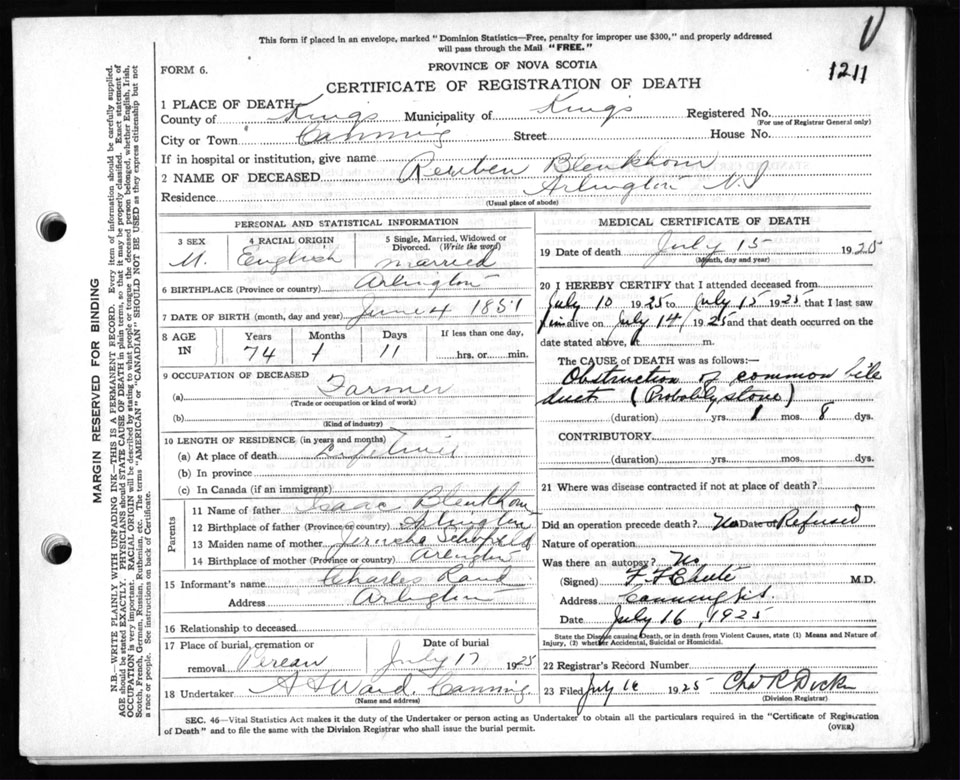 This form if placed in an envelope, marked "Dominion Statistics—Free, penalty for improper use $300," and properly addressed
will pass through the Mail "FREE."
1211
FORM 6.
PROVINCE OF NOVA SCOTIA
CERTIFICATE OF REGISTRATION OF DEATH
1 PLACE OF DEATH
County of King's Municipality of King's Registered No.
(For use of Registrar General only)
City or Town Canning Street House No.
If in hospital or institution, give name
2 NAME OF DECEASED Reuben Blenkhorn
Residence Arlington N.S
(Usual place of abode)
PERSONAL AND STATISTICAL INFORMATION
3 SEX 4 RACIAL ORIGIN 5 Single, Married, Widowed or
Divorced. (Write the word)
M. English married
6 BIRTHPLACE (Province or country) Arlington
7 DATE OF BIRTH (month, day and year) June 4 1851
8 AGE IN Years Months Days If less than one day,
74 1 11 hrs. or min.
9 OCCUPATION OF DECEASED
(a) Farmer
(Trade or occupation or kind of work)
(b)
(Kind of industry)
10 LENGTH OF RESIDENCE (in years and months)
(a) At place of death Lifetime
(b) In province
(c) In Canada (if an immigrant)
Parents
11 Name of father Isaac Blenkhorn
12 Birthplace of father (Province or country) Arlington
13 Maiden name of mother Jerusha Schofield
14 Birthplace of mother (Province or country) Arlington
15 Informant's name Charles Rand
Address Arlington
16 Relationship to deceased
17 Place of burial, cremation or Date of burial
removal Pereau July 17 1925
18 Undertaker A F Ward. Canning
(Name and address)
MEDICAL CERTIFICATE OF DEATH
19 Date of death July 15 1925
(Month, day and year)
20 I HEREBY CERTIFY that I attended deceased from
July 10 1925 to July 15 1925, that I last saw
him alive on July 14, 1925 and that death occurred on the
date stated above, at m.
The CAUSE OF DEATH was as follows:—
Obstruction of common bile
duct (Probably stone)
(duration) yrs. 1 mos. 8 dys.
CONTRIBUTORY
(duration) yrs. mos. dys.
21 Where was disease contracted if not at place of death?
Did an operation precede death? No Date of Refused
Nature of operation
Was there an autopsy? No
(Signed) F F Chute M.D.
Address Canning N.S.
Date July 16, 1925
State the Disease causing Death, or in death from Violent Causes, state (1) Means and Nature of
Injury, (2) whether Accidental, Suicidal or Homicidal.
22 Registrar's Record Number
23 Filed July 16 1925 Chas R Dickie
(Division Registrar)
SEC. 46—Vital Statistics Act makes it the duty of the Undertaker or person acting as Undertaker to obtain all the particulars required in the "Certificate of Registration
of Death" and to file the same with the Division Registrar who shall issue the burial permit.
(OVER)
MARGIN RESERVED FOR BINDING
N.B.—WRITE PLAINLY WITH UNFADING INK—THIS IS A PERMANENT RECORD. Every item of information should be carefully supplied.
AGE should be stated EXACTLY. PHYSICIANS should STATE CAUSE OF DEATH in plain terms, so that it may be properly classified. Exact statement of
OCCUPATION is very important. RACIAL ORIGIN will be described by stating to what people or tongue the deceased person belonged, whether English, Irish,
Scotch, French, German, Russian, Ruthenian, etc. The terms "AMERICAN" or "CANADIAN" SHOULD NOT BE USED as they express citizenship but not
a race or people. See instructions on back of Certificate.